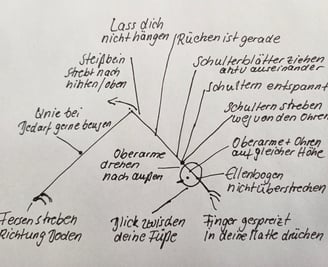 Lass dich
nicht hängen
Rücken ist gerade
Steißbein
strebt nach
hinten/oben
Schulterblätter ziehen
aktiv auseinander
Schultern entspannt
Schultern streben
weg von den Ohren
Knie bei
Bedarf gerne beugen
Oberarme
drehen
nach außen
Oberarme + Ohren
auf gleicher Höhe
Ellenbogen
nicht überstrecken
Fersen streben
Richtung Boden
Blick zwischen
deine Füße
Finger gespreizt
in deine Matte drücken